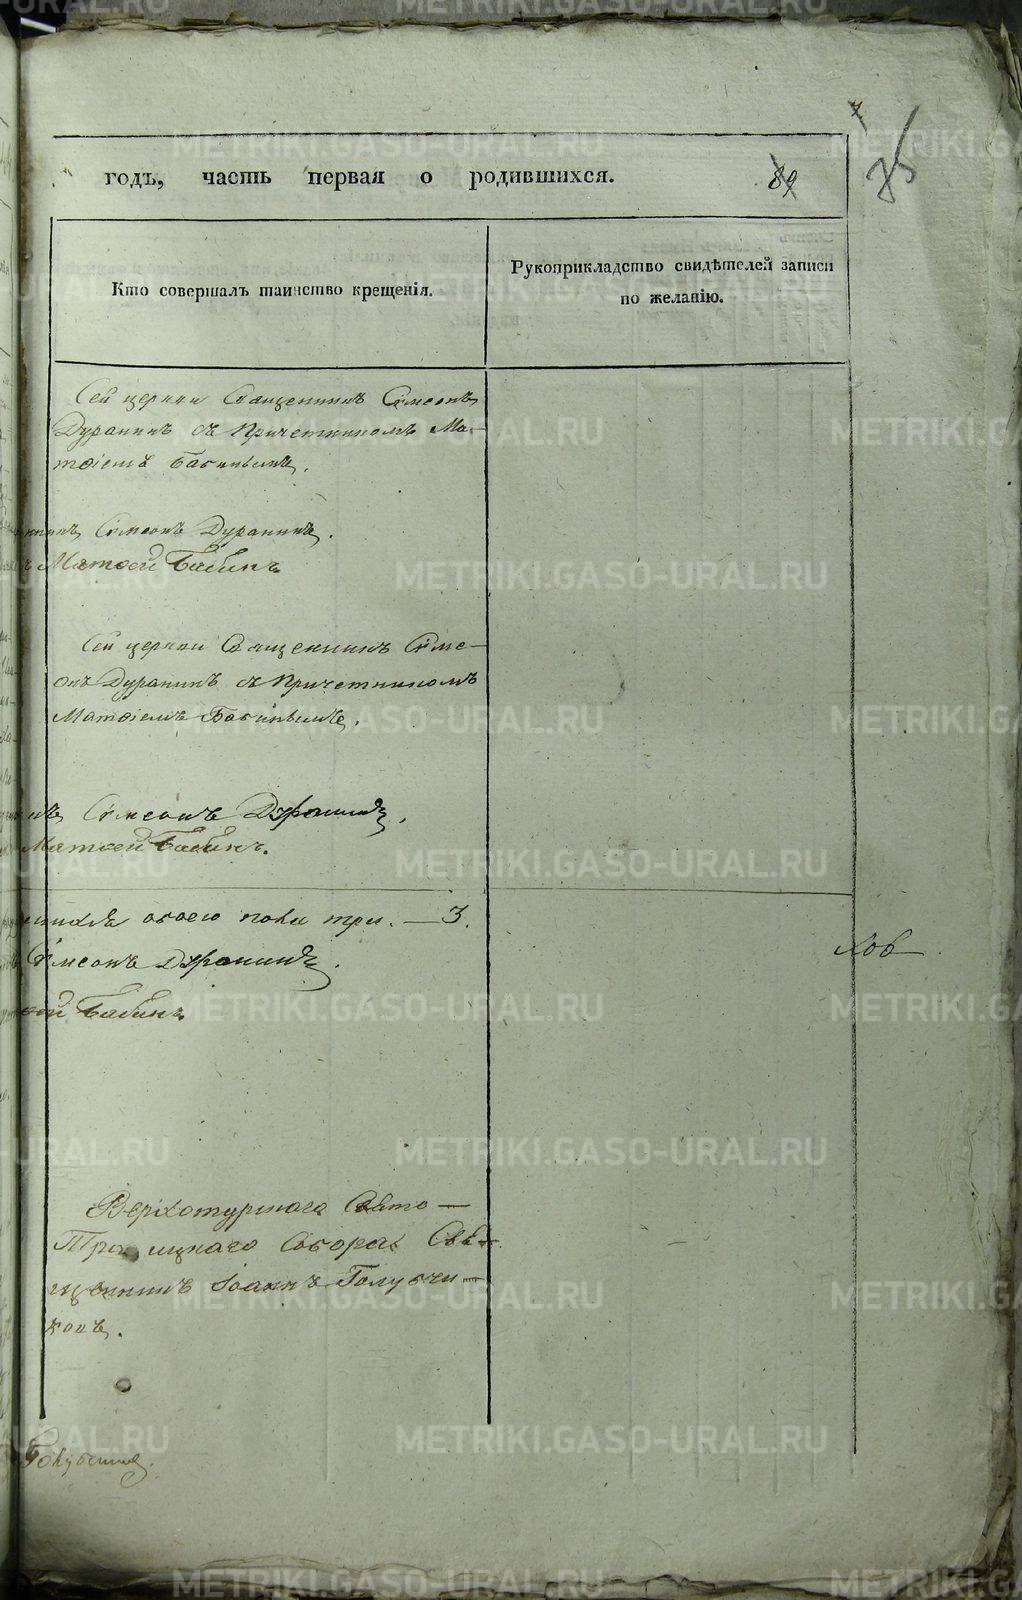 75
годъ, часть первая о родившихся. 89
Кто совершалъ таинство крещенія.
Рукоприкладство свидѣтелей записи
по желанію.
Сей церкви Священникъ Сѵмеонъ
Дуранинъ съ Причетникомъ Ма-
тѳіемъ Бабинымъ.
Сѵмеонъ Дуранинъ.
Матѳей Бабинъ
Сей церкви Священникъ Сѵме-
онъ Дуранинъ съ Причетникомъ
Матѳіемъ Бабинымъ.
Сѵмеонъ Дуранинъ.
Матѳей Бабинъ.
обоего пола три. — 3.
Сѵмеонъ Дуранинъ.
ков
Бабинъ
Верхотурскаго Свято-
Троицкаго Собора Свя-
щенникъ Іоаннъ Голубчи-
ковъ.
METRIKI.GASO-URAL.RU